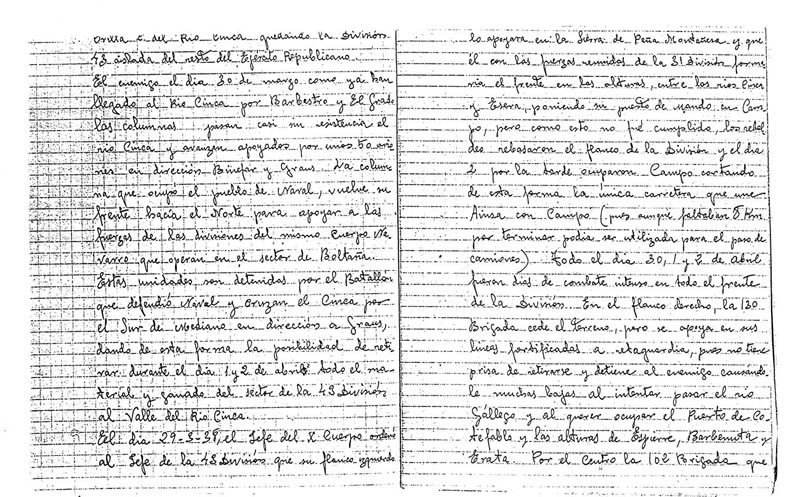 orilla i. del Rio Cinca quedando la División
43 aislada del resto del Ejército Republicano.
El enemigo el dia 30 de marzo como ya han
llegado al Rio Cinca por Barbastro y El Grado
las columnas pasan casi sin existencia el
rio Cinca y avanzan apoyados por unos 50
en dirección Binefar y Graus. La colum
na que ocupo el pueblo de Naval, vuelve su
frente hacia el Norte para apoyar a las
fuerzas de las divisiones del mismo Cuerpo Na
varro que operan en el sector de Boltaña.
Estas unidades son detenidas por el Batallon
que defendió Naval y cruzan el Cinca por
el Sur de Mediano en dirección a Graus,
dando de esta forma la posibilidad de reti
rar durante el dia 1 y 2 de abril todo el ma
terial y ganado del sector de la 43 División
al Valle del Rio Cinca.
El dia 29-3-38, el Jefe del X Cuerpo ordenó
al Jefe de la 43 División que su flanco izquierdo
lo apoyara en la Sierra de Peña Montañera y que
él con las fuerzas reunidas de la 31 División forma
ria el frente en las alturas, entre los rios Cinca
y Esera, poniendo su puesto de mando en Cam
po, pero como esto no fué cumplido, los rebel
des rebasaron el flanco de la División y el dia
2 por la tarde ocuparon Campo cortando
de esta forma la única carretera que une
Ainsa con Campo (pues aunque faltaban 8 Km
por terminar podia ser utilizada para el paso de
camiones). Todo el dia 30, 1 y 2 de Abril
fueron dias de combate intenso en todo el frente
de la División. En el flanco derecho, la 130
Brigada cede el terreno, pero se apoya en sus
lineas fortificadas a retaguardia, pues no tiene
prisa de retirarse y detiene al enemigo causando
le muchas bajas al intentar pasar el rio
Gállego y al querer ocupar el Puerto de Co
tefablo y las alturas de Espierre, Barbenuta y
Erata. Por el Centro la 102 Brigada que